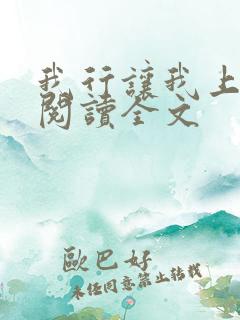 我行讓我上
閱讀全文
歐巴好
未经同意禁止转载